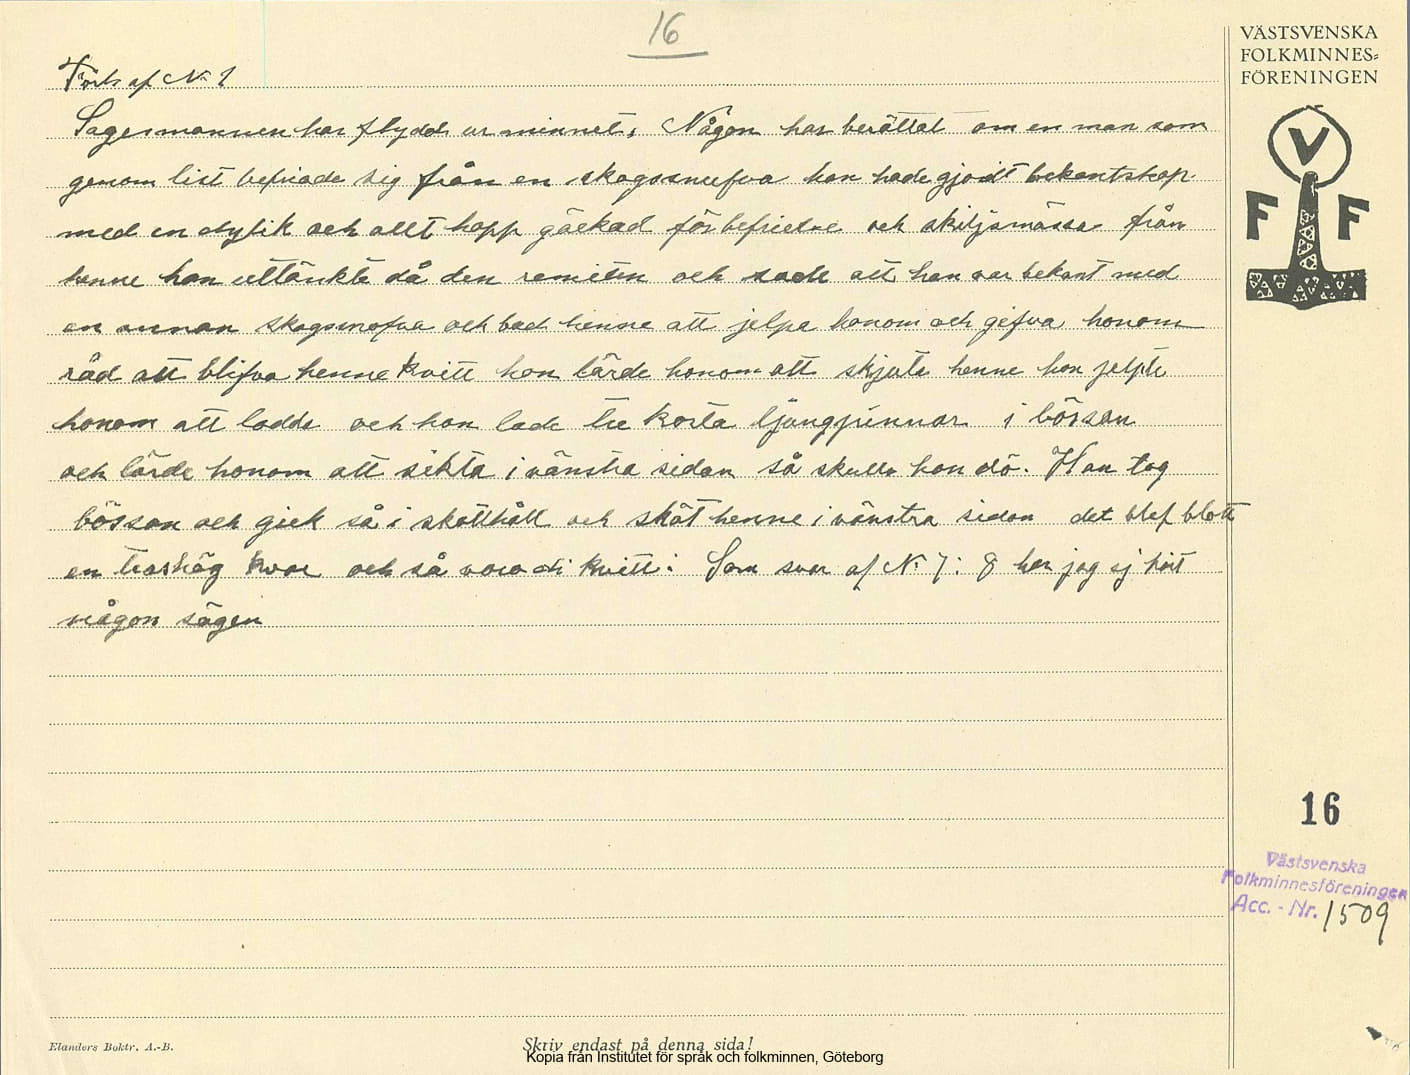 16
VÄSTSVENSKA
FOLKMINNES=
FÖRENINGEN
Forts af No 1
Sagesmannen har flydd ur minnet. Någon har berättat om en man som
genom list befriade sig från en skogsnufva han hade gjordt bekantskap
med en dylik och allt hopp gäckad för befrielse och skiljsmässa från
henne han uttänkte då den remiten och sade att han var bekant med
en annan skogsnofva och bad henne att jelpa honom och gifva honom
råd att blifva henne kvitt hon lärde honom att skjuta henne hon jelpte
honom att ladda och hon lade tre korta ljungpinnar i bössan
och lärde honom att sikta i vänstra sidan så skulle hon dö. Han tog
bössan och gick så i skotthåll och sköt henne i vänstra sidan det blef blott
en trashög kvar och så voro di kvitt. Som svar af No 7: 8 har jag ej hört
någon sägen
V
F F
16
Västsvenska
Folkminnesföreningen
Acc. - Nr. 1509
Elanders Boktr. A.-B.
Skriv endast på denna sida!
Kopia från Institutet för språk och folkminnen, Göteborg